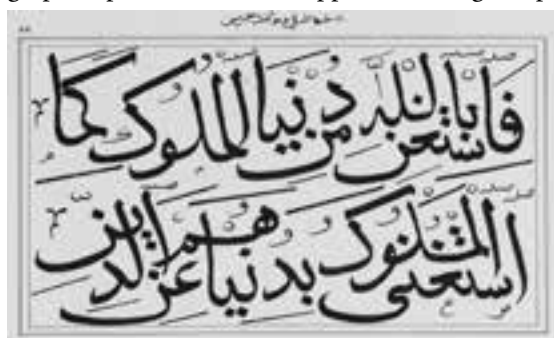 فاستغن بالله من دنيا الملوك كما
استغنى الملوك بدنياهم عن الدين